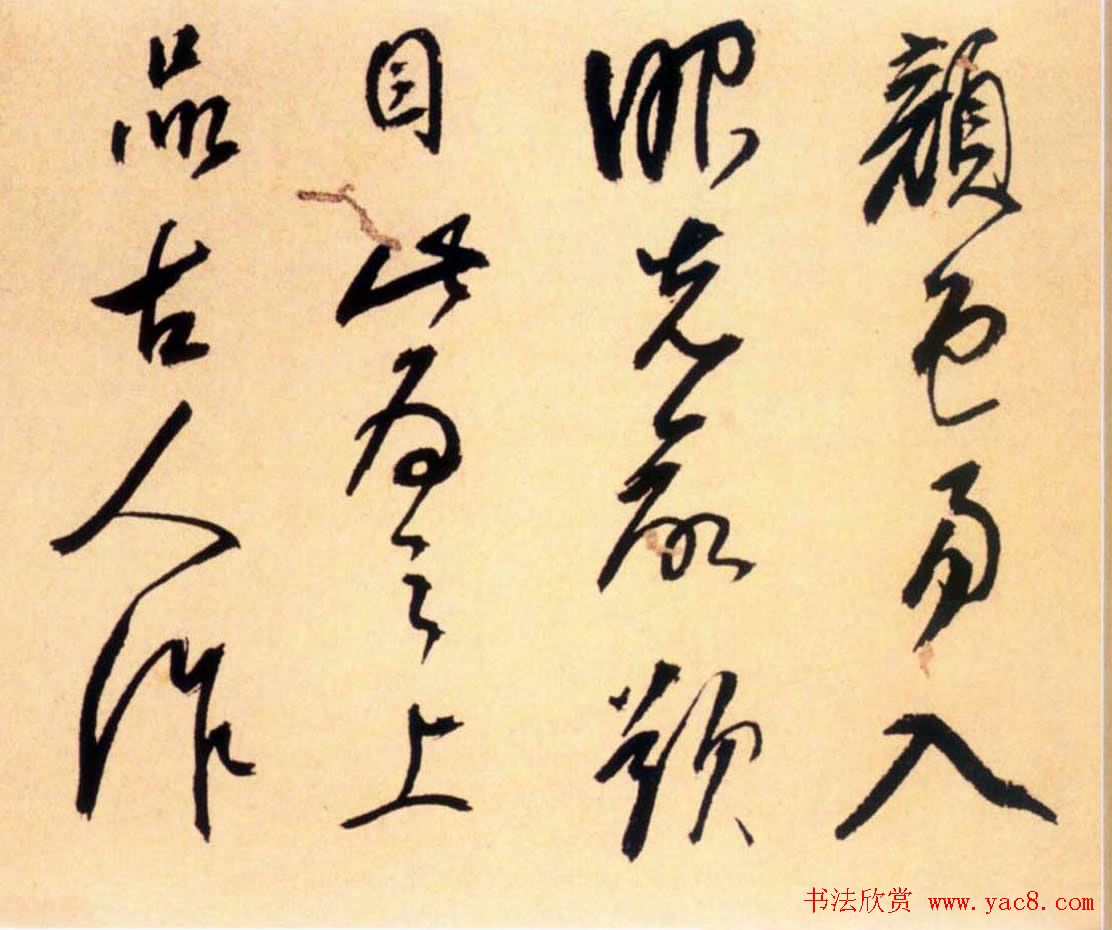 顏色易入
眼
目此為之上
品古人作
书法欣赏 www.yac8.com